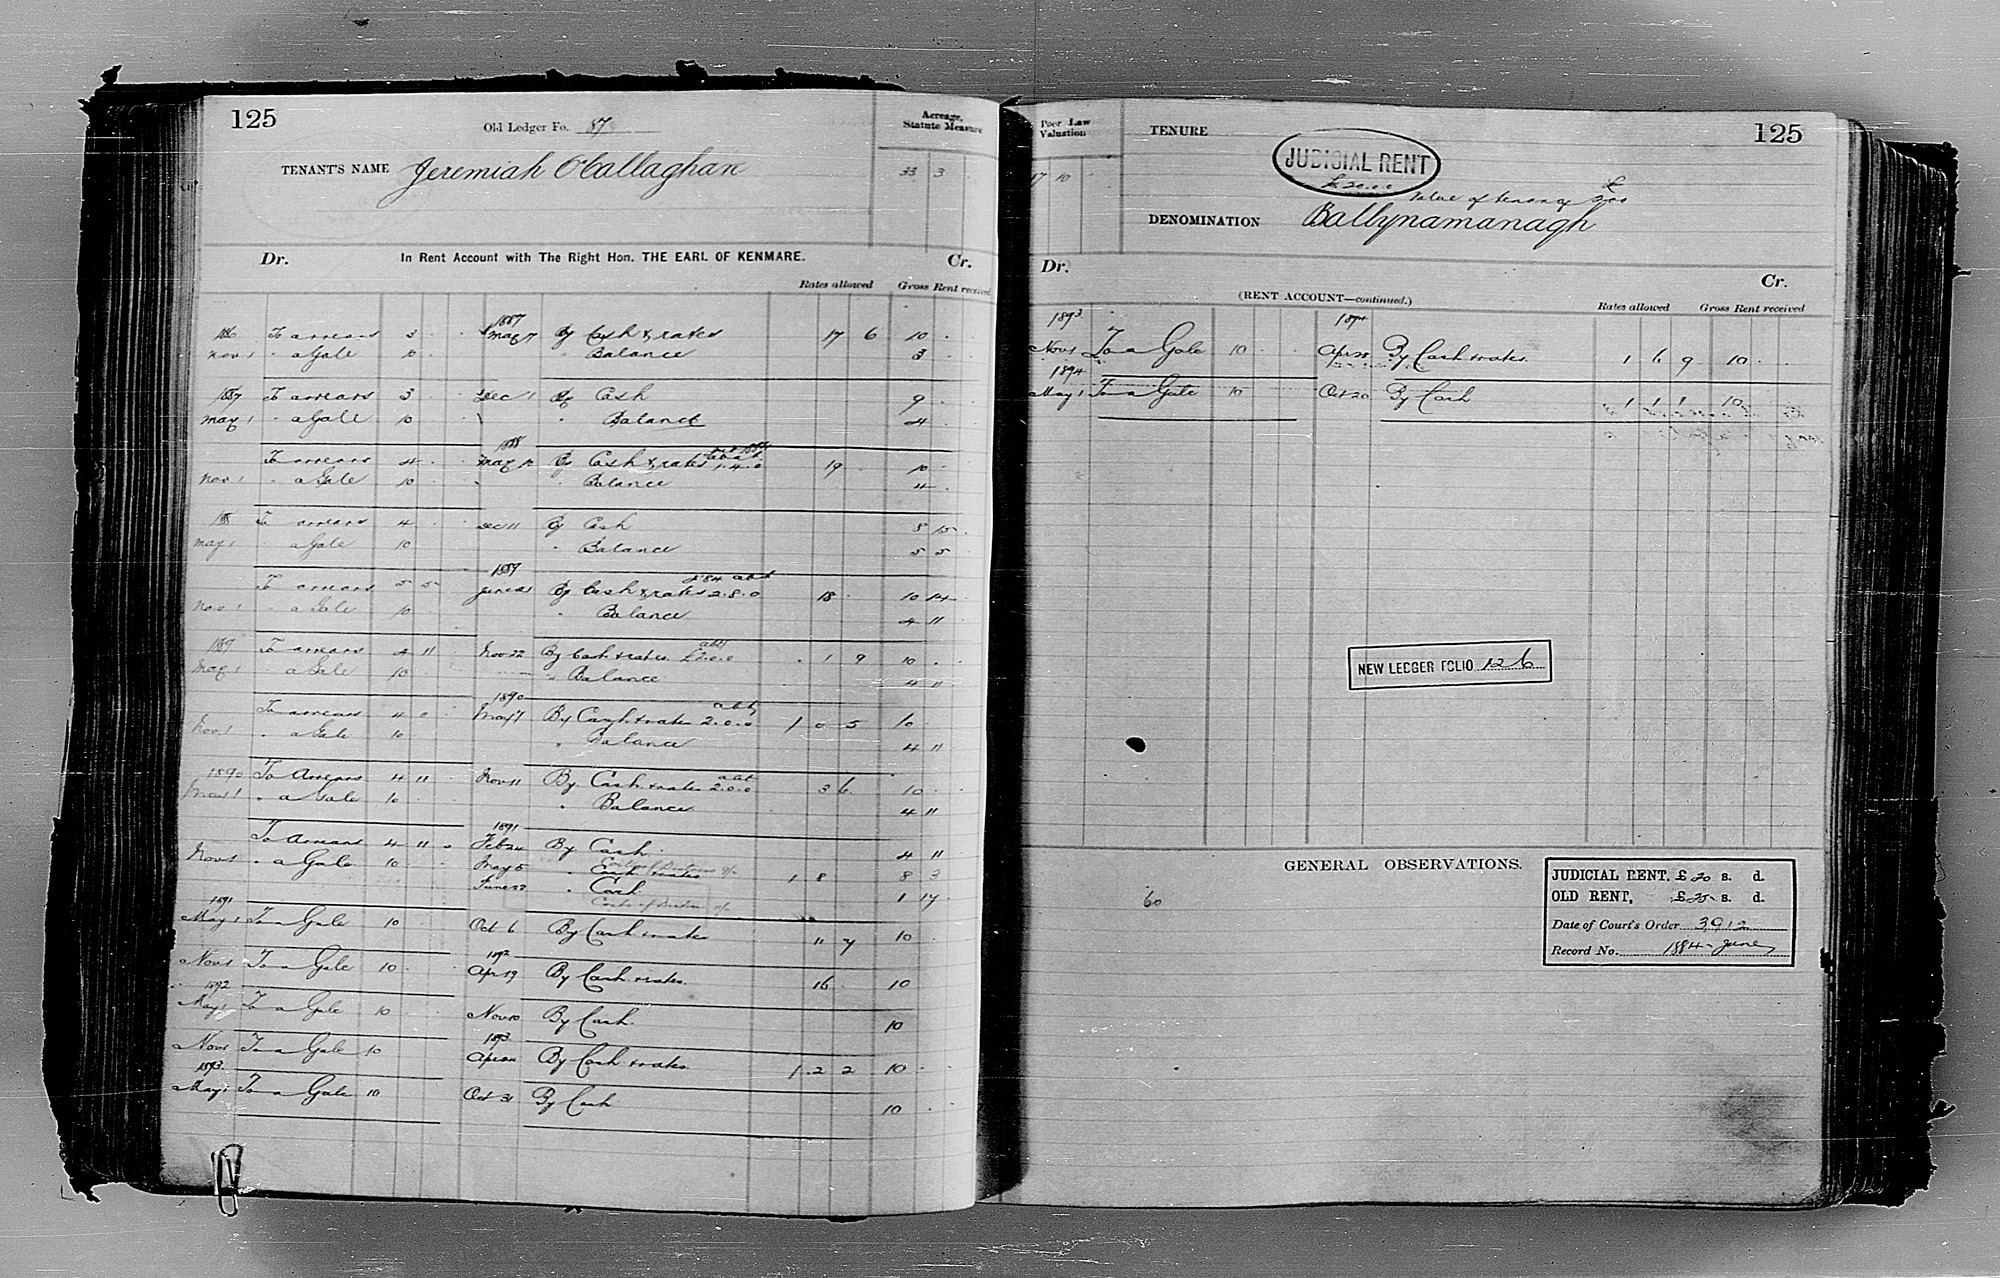 125
Old Ledger Fo. 87
Acreage, Statute Measure
TENANT'S NAME Jeremiah O'Callaghan
33 3
Dr. In Rent Account with The Right Hon. THE EARL OF KENMARE. Cr.
Rates allowed Gross Rent received
1887
1886 To arrears 3 May 7 By Cash & rates 17 6 10
Nov 1 " a Gale 10 " Balance 3
1887 To arrears 3 Dec 1 By Cash 9
May 1 " a Gale 10 " Balance 4
1888
To arrears 4 May 10 By Cash & rates 1.4.0 19 10
Nov 1 " a Gale 10 " Balance 4
1888 To arrears 4 Dec 11 By Cash 8 15
May 1 " a Gale 10 " Balance 5 5
1889
To arrears 5 5 June By Cash & rates 2.8.0 18 10 14
Nov 1 " a Gale 10 " Balance 4 11
1889 To arrears 4 11 Nov 22 By Cash & rates abt £2.0.0 1 9 10
May 1 " a Gale 10 " Balance 4 11
1890
To arrears 4 May 7 By Cash & rates abt 2.0.0 1 0 5 10
Nov 1 " a Gale 10 " Balance 4 11
1890 To Arrears 4 11 Nov 11 By Cash & rates abt 2.0.0 3 6 10
May 1 " a Gale 10 " Balance 4 11
1891
To Arrears 4 11 0 Feb 24 By Cash 4 11
Nov 1 " a Gale 10 May 5 " Cash & rates 1 8 8 3
June 27 " Cash 1 17
1891
May 1 To a Gale 10 Oct 6 By Cash & rates 11 7 10
1892
Nov 1 To a Gale 10 Apr 19 By Cash & rates 16 10
1892
May 1 To a Gale 10 Nov 10 By Cash 10
1893
Nov 1 To a Gale 10 Apr 24 By Cash & rates 1 2 2 10
1893
May 1 To a Gale 10 Oct 31 By Cash 10
Poor Law Valuation
TENURE
125
JUDICIAL RENT
£20.0.0
17 10
Value of tenancy £200
DENOMINATION Ballynamanagh
Dr. Cr.
(RENT ACCOUNT—continued.)
Rates allowed Gross Rent received
1893 1894
Nov 1 To a Gale 10 Apr 28 By Cash & rates 1 6 9 10
1894
May 1 To a Gale 10 Oct 20 By Cash 1 1 1 10
NEW LEDGER FOLIO 126
GENERAL OBSERVATIONS.
60
JUDICIAL RENT, £20 s. d.
OLD RENT, £25 s. d.
Date of Court's Order 3912
Record No. 1884 June